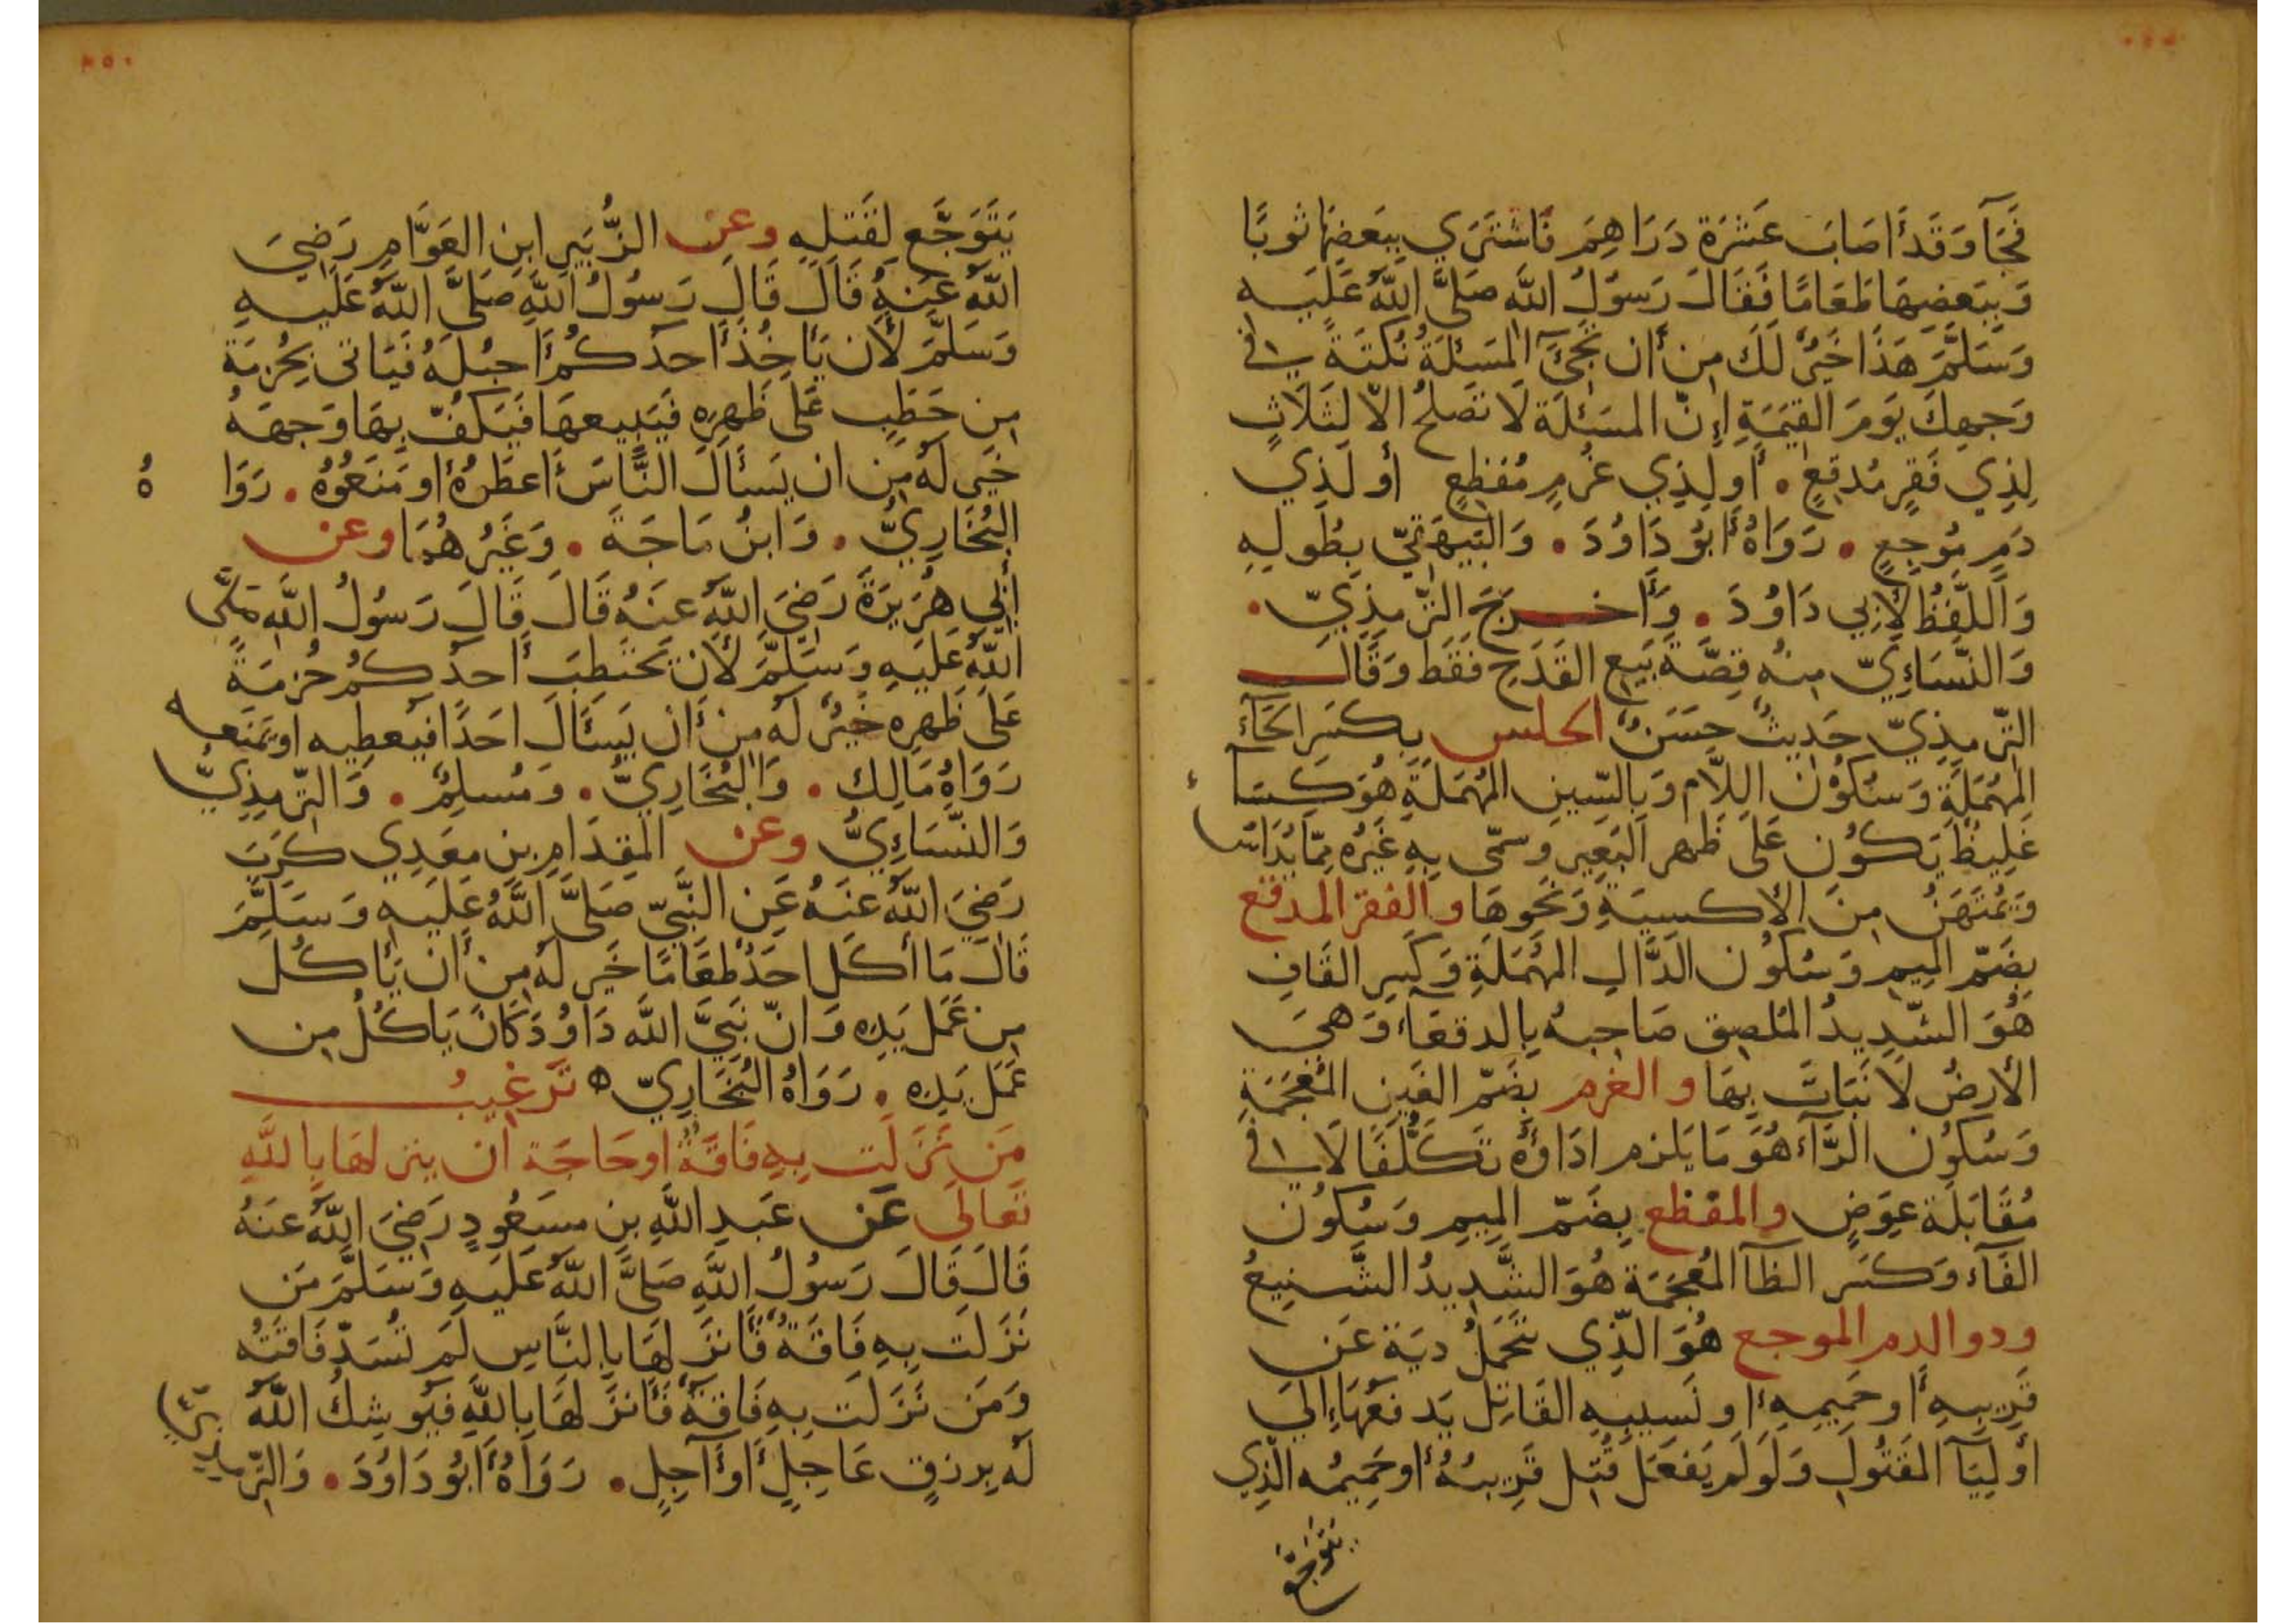 فَجَآ وَقَد أَصَابَ عَشْرَة دَرَاهِمَ فَاشْتَرَي بِبَعضِهَا ثَوبًا
وَبِبَعضِهَا طَعَامًا فَقَالَ رَسوُلُ اللَّه صَلَّى اللَّهُ عَلَيَه
وَسَلَّمَ هَذَا خَيٌر لَكَ مِن أَن تَجِئَ المَسئلَةُ نُكتَةً في
وَجهِكَ يَومَ القِيَمَةِ إِنّ المَسَئلَةَ لَا تَصَلحُ الاّ لِثَلَاثٍ
لِذِي فَقرٍ مُدقعٍ . أَو لِذِي غُرمٍ مُفظِعٍ أو لَذِي
دَمٍ مُوجِعٍ . رَوَاهُ أَبُو دَاوُدَ . وَالبَيهَقيّ بِطُولِهِ
وَاللَّفظُ لِأَبِي دَاوُدَ . وَأَخرَجَ التّرمِذِيّ .
وَالنَّسَاءِيّ مِنهُ قِصَّةَ بَيعِ القَدَحِ فَقَط وَقَالَ
التّرمِذِيّ حَدِيثٌ حَسَنٌ الحلس بِكَسَرِ الحَآءِ
المُهمَلَةِ وَسُكوُن اللاَّم وَبِالسّينِ المُهمَلَةِ هُوَ كِسَآء
غَلِيظٌ يَكوُن عَلَى ظَهرِ البَعِيرِ وسمّى بِهِ غَيرُه مِمّا يُدَاسُ
وَيُمتَهَنُ مِنَ الأكسيَةِ وَنَحَوهَا والفقر المدقع
بِضَمّ المِيمِ وَسُكوُن الدَّالِ المُهمَلَةِ وَكَسِر القَافِ
هُوَ الشّدِيدُ المُلصِق صَاحِبهُ بِالدقعَآء وَهيَ
الأرضُ لَا نَبَاتَ بِهَا والغرم بِضَمّ الغَينِ المُعجَمَةِ
وَسُكوُن الرَّآء هُوَ مَا يَلزم ادَاؤُهُ تَكَلُّفًا لَا في
مُقَابَلَة عِوَضٍ والمفظع بِضَمّ المِيمِ وَسُكوُن
الفَآء وَكَسَر الظآ المُعجَمَة هُوَ الشَّدِيدُ الشَّنِيعُ
وذو الدم الموجع هُوَ الذّي تَحَمَّلُ ديَة عَن
قَرِيبِهِ أَو حَمِيمِهِ أَو نَسِيبِهِ القَاتِل يَدفَعُهَا إلىَ
أَولِيَآ المَقتُولِ وَلَو لَم يَفعَل قُتِل قَرِيبُهُ أَو حَمِيمُه الذِي
يَتَوَجَّع
يَتَوَجَّع لِقَتلِهِ وعن الزُّبَيرِ ابنِ العَوَّامِ رَضِيَ
اللَّهُ عَنهُ قَالَ قَالَ رَسوُلُ اللَّهِ صَلَّى اللَّهُ عَلَيهِ
وَسَلَّمَ لَأَن يَأخُذَ أَحَدكُم أَحبُلَهُ فَيَاتى بِحُزمَة
مِن حَطَبٍ عَلَى ظَهرِهِ فَيَبِيعهَا فَيَكفّ بِهَا وَجهَهُ
خَيرٌ لَه مِن ان يَسأَلَ النَّاسَ أَعطَوهُ أَو مَنَعُوُه . رَوَاهُ
البُخَارِيُّ . وَابنُ مَاجَةَ . وَغَيرُ هُمَا وعن
أبِي هُرَيرَةَ رَضِيَ اللَّهُ عنَهُ قَالَ قَالَ رَسوُلُ اللَّهِ صَلَّى
اللَّهُ عَلَيهِ وَسَلَّمَ لَأن يَحتَطِبَ أَحدكُم حُزمَةً
عَلَى ظَهرِهِ خَيٌر لَه مِن أَن يَسئَالَ احَدًا فَيُعطِيه اويَمنَعه
رَوَاهُ مَالِك . وَالبُخَارِيُّ . وَمُسلِمٌ . وَالتّرمِذِيُّ
وَالنَّسَاءِيُّ وعن المِقدَامِ بنِ مَعَدِي كَرِبَ
رَضِيَ اللَّهُ عَنهُ عَنِ النَّبِيّ صَلَّى اللَّهُ عَلَيهِ وَسَلَّمَ
قَالَ مَا أَكَل احَدٌ طَعَامًا خَير لَه مِن أَن يَأكُلَ
مِن عَمَل يَدِه وَانّ نَبِيَّ اللَّه دَاوُدَ كَانَ يَاكُلُ مِن
عَمَل يَدِه . رَوَاهُ البُخَارِيّ ه تَرغِيبُ
مَن نَزَلَت بِهِ فَاقَةٌ اَو حَاجَة أن ينزلهَا بِاللَّهِ
تَعَالَى عَن عَبدِ اللَّهِ بنِ مسَعُودٍ رَضِيَ اللَّهُ عَنهُ
قَالَ قَالَ رَسوُلُ اللَّهِ صَلَّى اللَّهُ عَلَيهِ وَسَلَّمَ مَن
نَزَلَت بِهِ فَاقَةٌ فَأَنزَلهَا بِالنَّاسِ لَم تُسَدّ فَاقَتُه
وَمَن نَزَلَت بِهِ فَاقَةٌ فَأَنزَلهَا بِاللَّهِ فَيوُشِكُ اللَّهُ
لَه بِرزقٍ عَاجِلٍ أَو آجِلٍ . رَوَاهُ أَبُو دَاوُدَ . وَالتّرمِذِيُّ